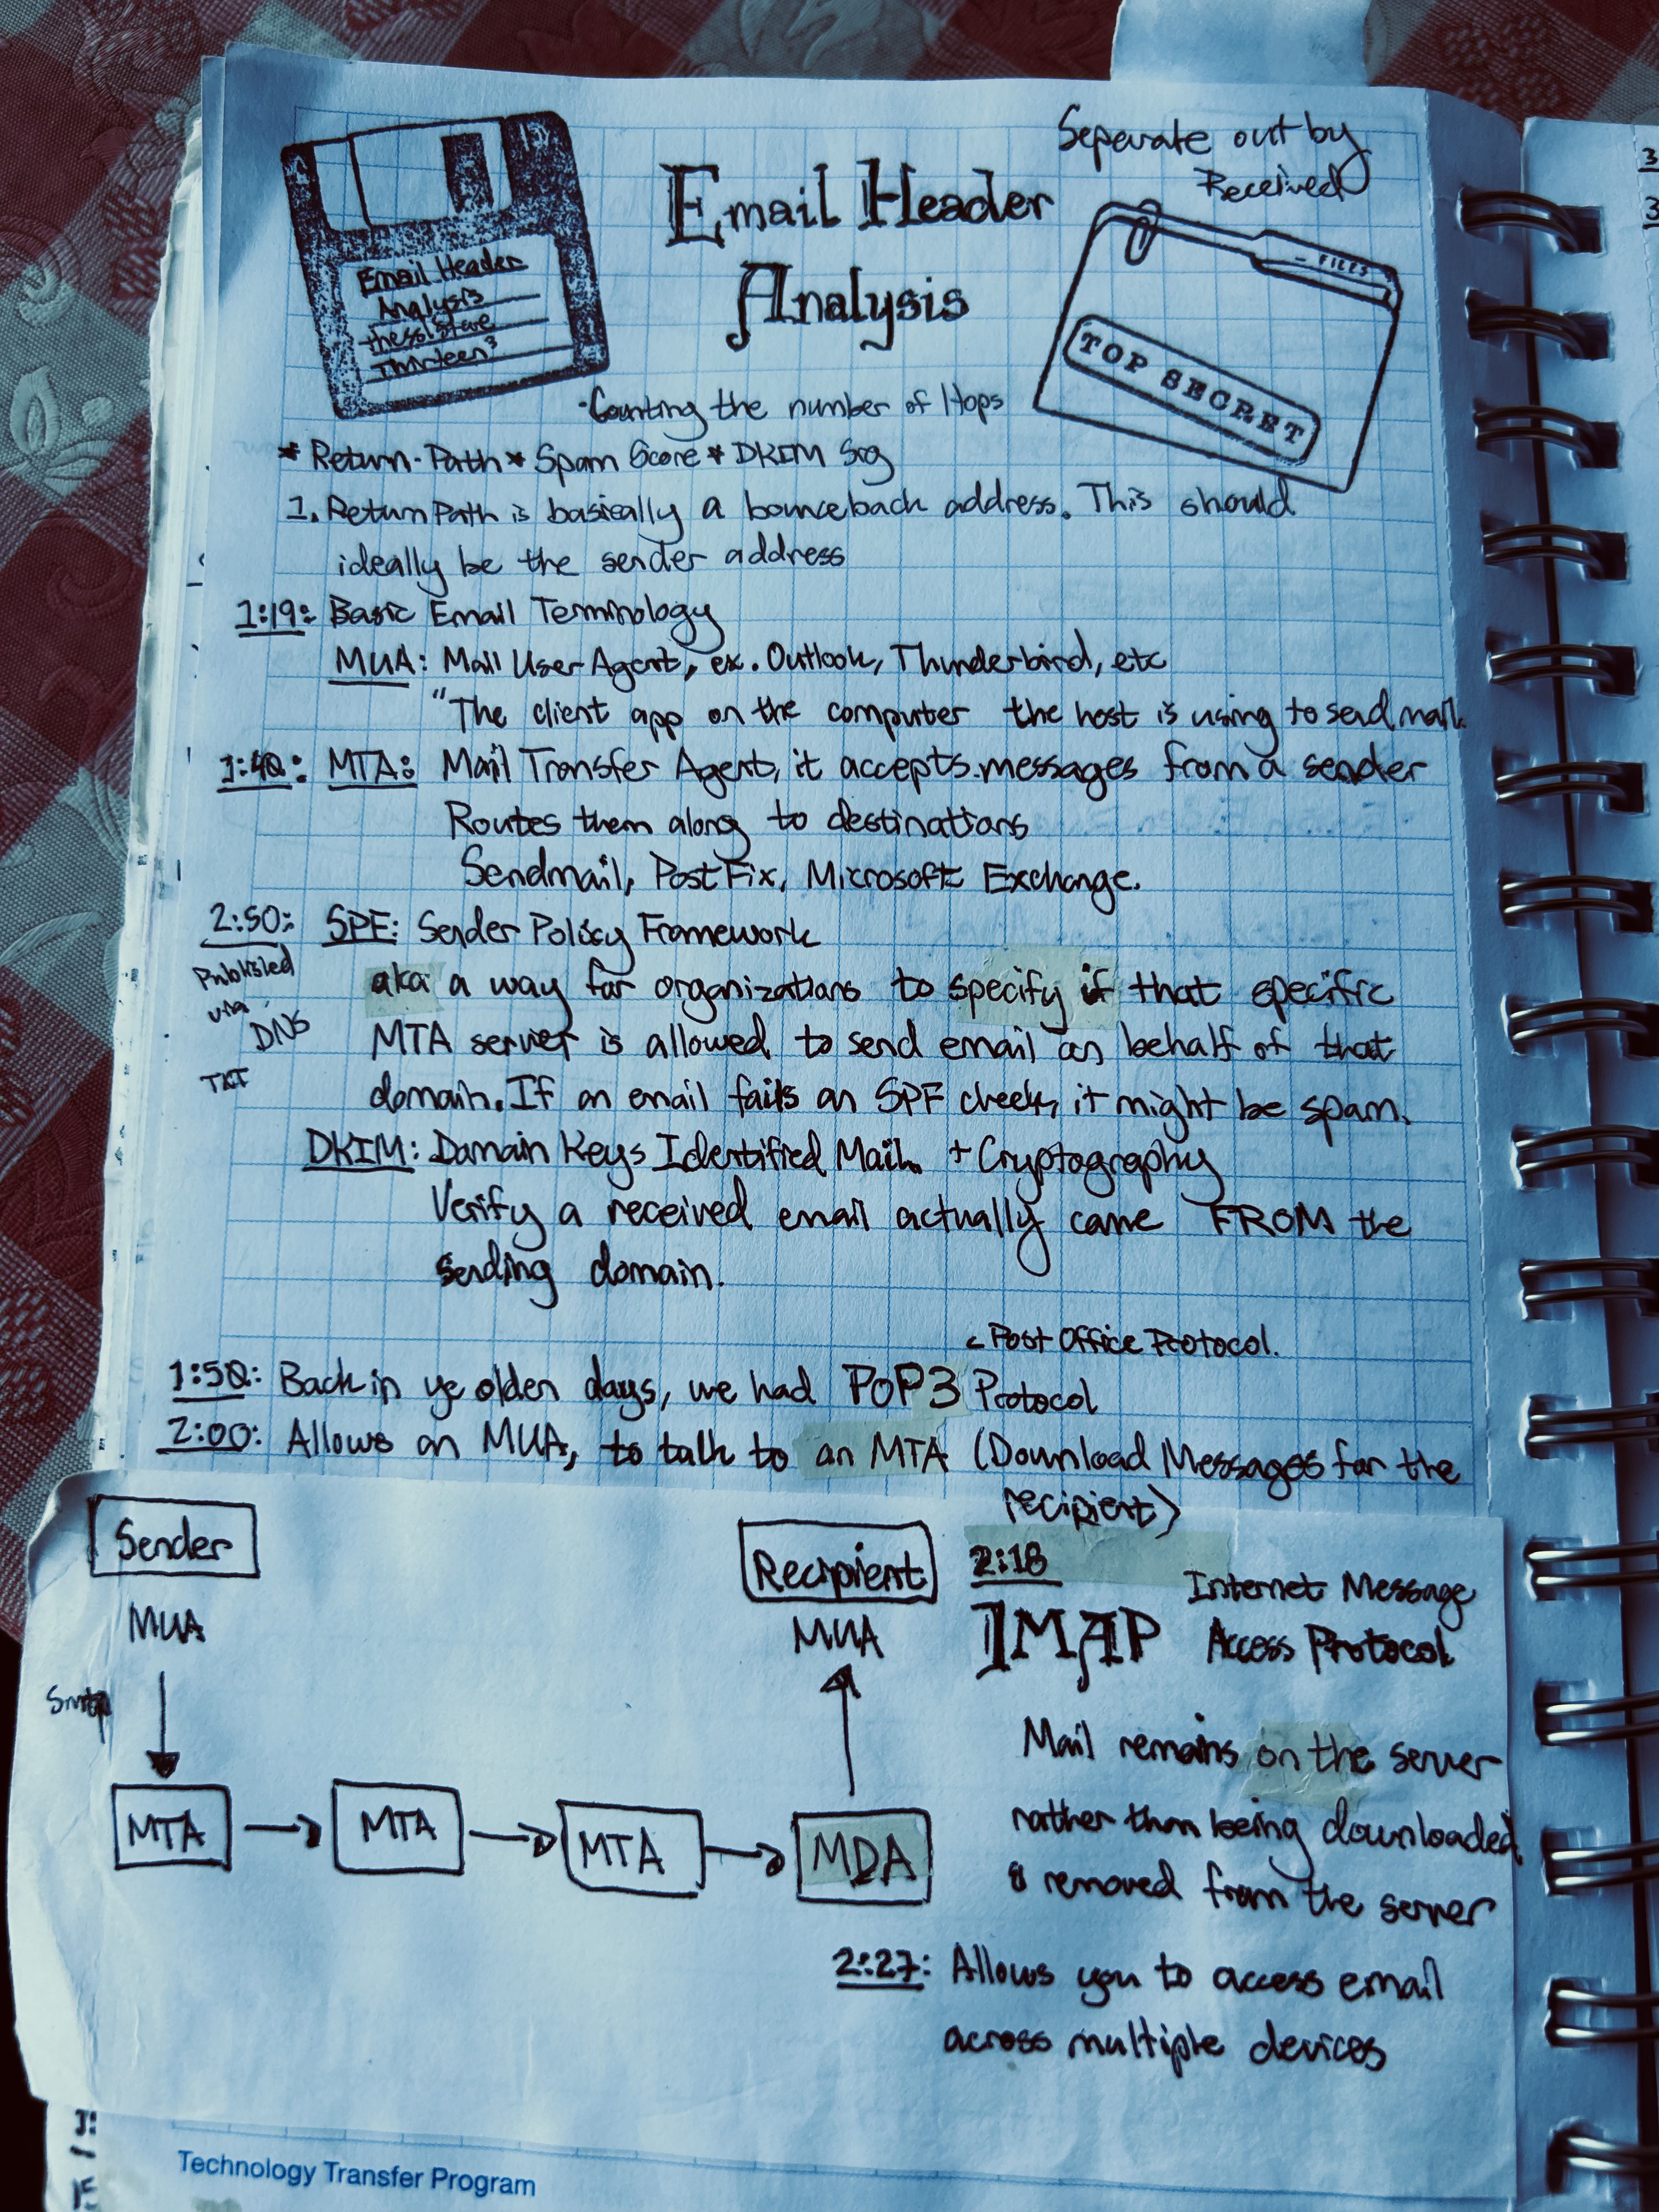 Seperate out by
Received
Email Header
Analysis
FILES
TOP SECRET
Email Header
Analysis
Thirteen³
·Counting the number of Hops
* Return-Path * Spam Score * DKIM Sig
1. Return Path is basically a bounceback address. This should
ideally be the sender address
1:19: Basic Email Terminology
MUA: Mail User Agent, ex. Outlook, Thunderbird, etc
"The client app on the computer the host is using to send mail.
1:40: MTA: Mail Transfer Agent, it accepts messages from a sender
Routes them along to destinations
Sendmail, PostFix, Microsoft Exchange.
2:50: SPF: Sender Policy Framework
Published
via
DNS
TXT
aka a way for organizations to specify if that specific
MTA server is allowed to send email on behalf of that
domain. If an email fails an SPF check, it might be spam.
DKIM: Domain Keys Identified Mail. + Cryptography
Verify a received email actually came FROM the
sending domain.
< Post Office Protocol.
1:50: Back in ye olden days, we had POP3 Protocol
2:00: Allows an MUA, to talk to an MTA (Download Messages for the
recipient)
Sender
MUA
Smtp
MTA
MTA
MTA
MDA
Recipient
MUA
2:18
IMAP Internet Message
Access Protocol
Mail remains on the server
rather than being downloaded
& removed from the server
2:27: Allows you to access email
across multiple devices
Technology Transfer Program